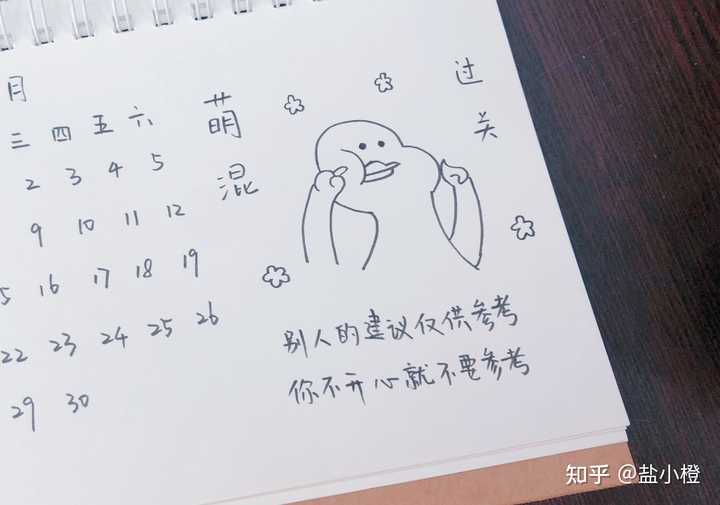 月
三 四 五 六
2 3 4 5
9 10 11 12
5 16 17 18 19
22 23 24 25 26
29 30
萌
混
过
关
别人的建议仅供参考
你不开心就不要参考
知乎 @盐小橙